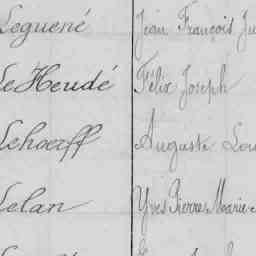 Leguené Jean François Ju
Le Heudé Félix Joseph
Lehoerff Auguste Lou
Lelan Yves Pierre Marie